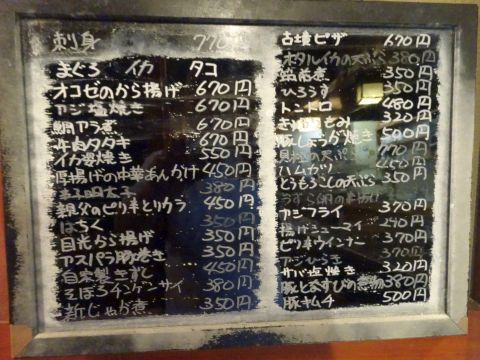 刺身 770円
まぐろ イカ タコ
オコゼのから揚げ 670円
アジ塩焼き 670円
鯛アラ煮 670円
牛肉タタキ 670円
イカ姿焼き 550円
厚揚げの中華あんかけ 450円
明太子 380円
親父のピリ辛とりカラ 450円
はちく 350円
目光から揚げ 350円
アスパラ豚巻き 350円
自家製きずし 450円
そぼろチンゲンサイ 380円
新じゃが煮 350円
古墳ピザ 670円
ホタルイカの天ぷら 380円
筑前煮 350円
ひろうす 350円
トントロ 480円
きゅうりもみ 320円
豚しょうが焼き 500円
貝柱の天ぷら
ハムカツ 450円
とうもろこしの天ぷら 350円
うずら卵の串揚げ
アジフライ 370円
揚げシューマイ 240円
ピリ辛ウインナー 370円
アジひらき 370円
サバ塩焼き 320円
豚となすびの煮物 380円
豚キムチ 500円